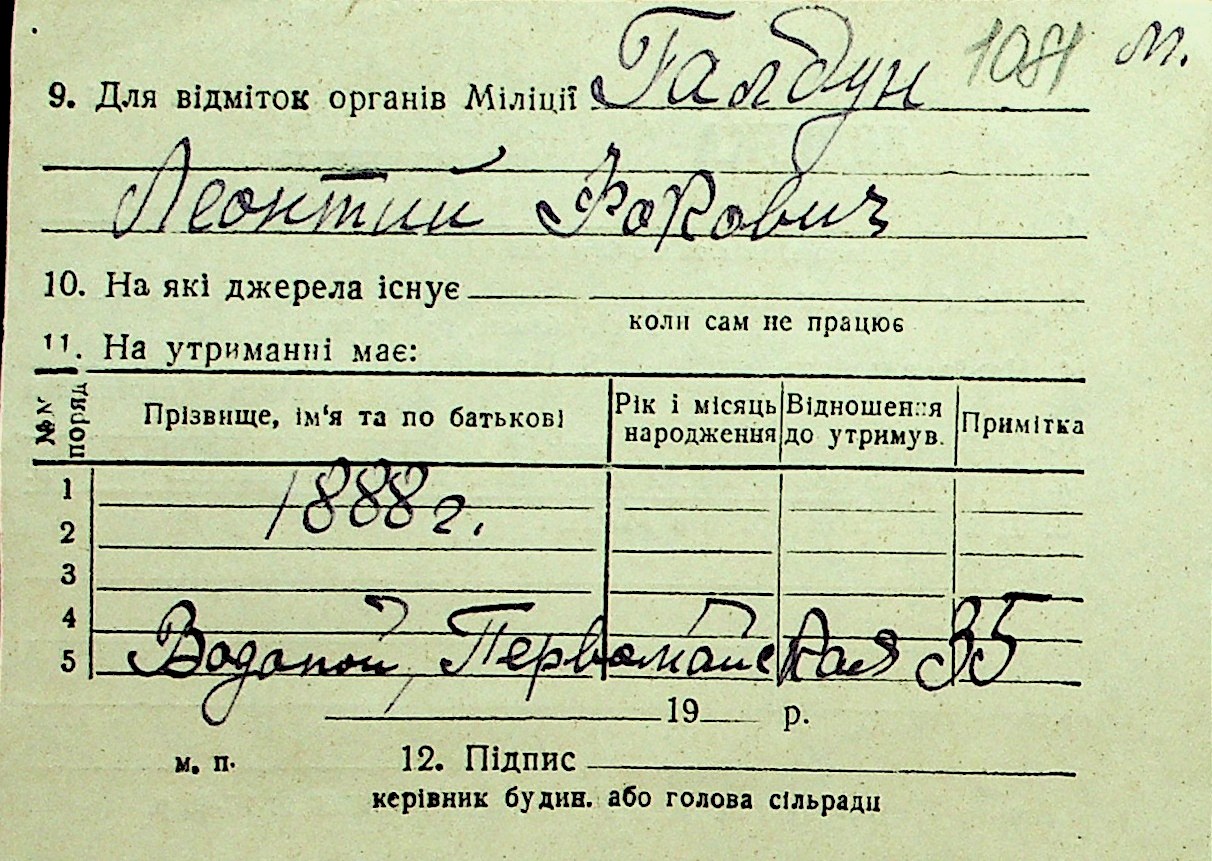 1081 м.
9. Для відміток органів Міліції Галбун
Леонтий Фокович
10. На які джерела існує
коли сам не працює
11. На утриманні має:
№№ поряд Прізвище, ім'я та по батькові Рік і місяць народження Відношення до утримув. Примітка
1
1888 г.
2
3
4
5 Водопой, Первомайская 35
19 р.
м. п. 12. Підпис
керівник будин. або голова сільради